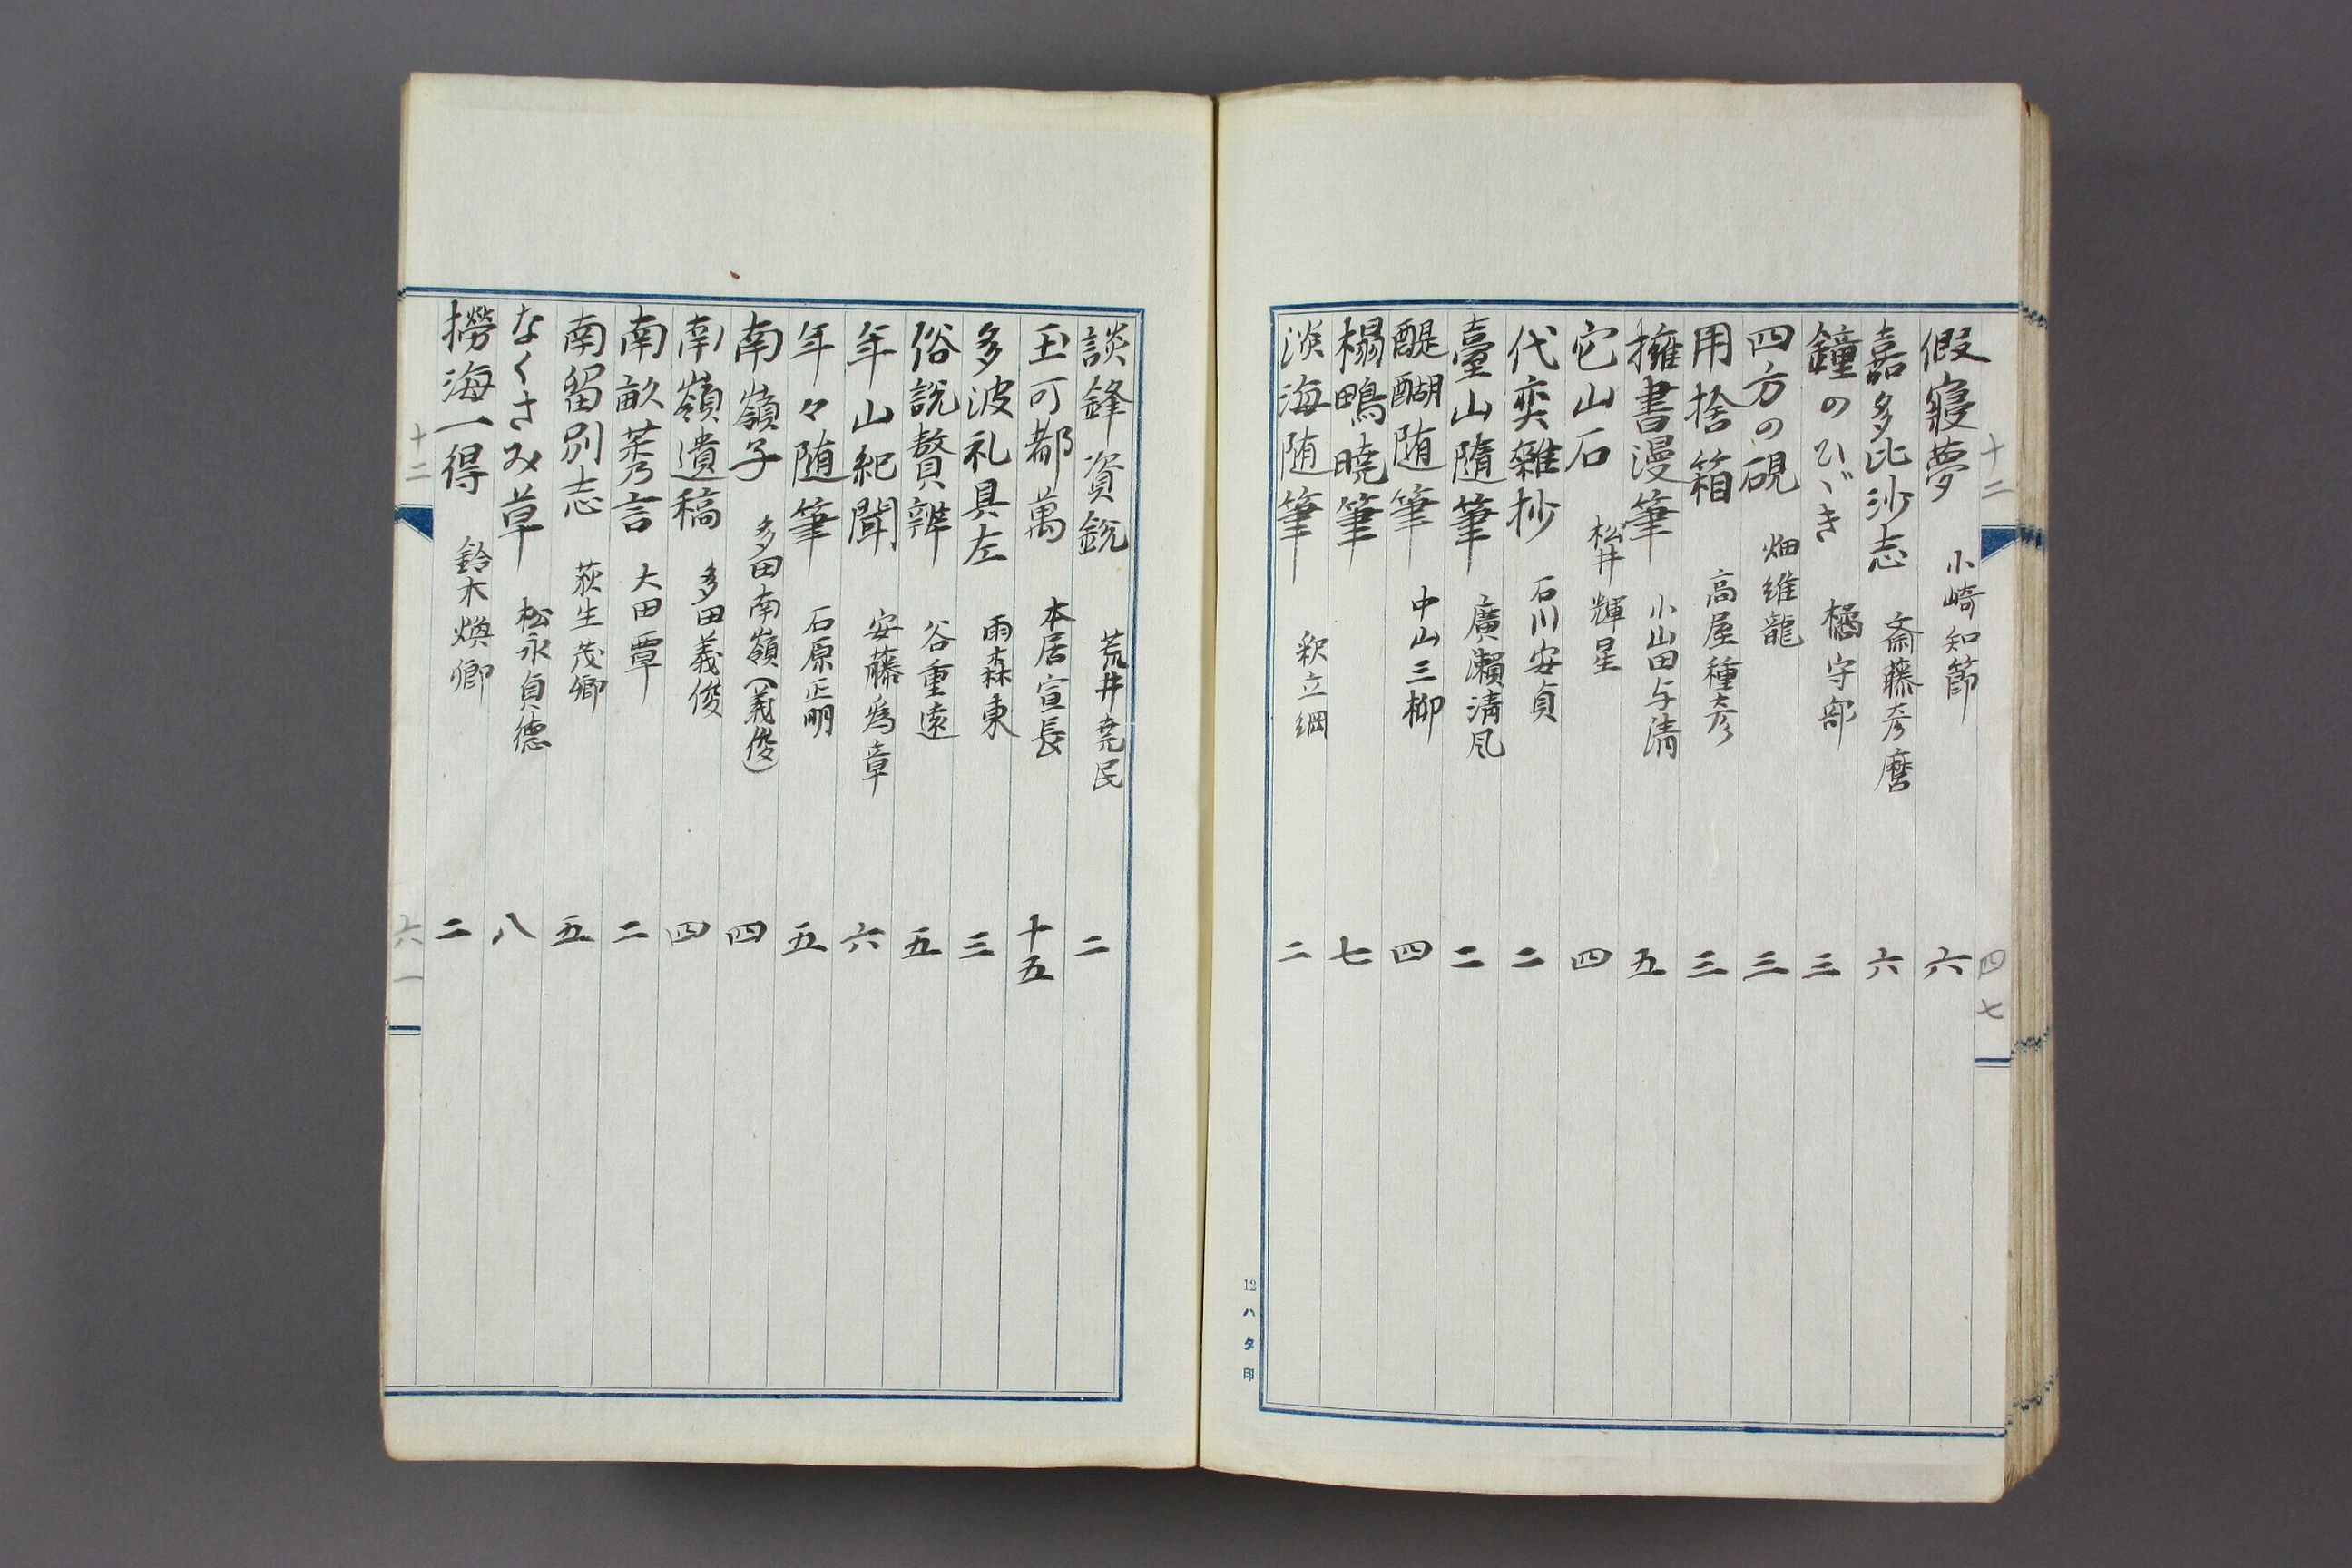 十二 四七
假寝夢 小崎知節 六
嘉多比沙志 齋藤彦麿 六
鐘のひゞき 橘守部 三
四方の硯 畑維龍 三
用捨箱 高屋種彦 三
擁書漫筆 小山田与清 五
它山石 松井輝星 四
代奕雜抄 石川安貞 二
臺山隨筆 廣瀬清風 二
醍醐随筆 中山三柳 四
榻鴫曉筆 七
淡海随筆 釈立綱 二
12 ハタ印
談鋒資鋭 荒井堯民 二
玉可都萬 本居宣長 十五
多波礼具左 雨森東 三
俗説贅辨 谷重遠 五
年山紀聞 安藤爲章 六
年々随筆 石原正明 五
南嶺子 多田南嶺(義俊) 四
南嶺遺稿 多田義俊 四
南畝莠言 大田覃 二
南留別志 荻生茂卿 五
なくさみ草 松永貞德 八
撈海一得 鈴木煥卿 二
十二 六一